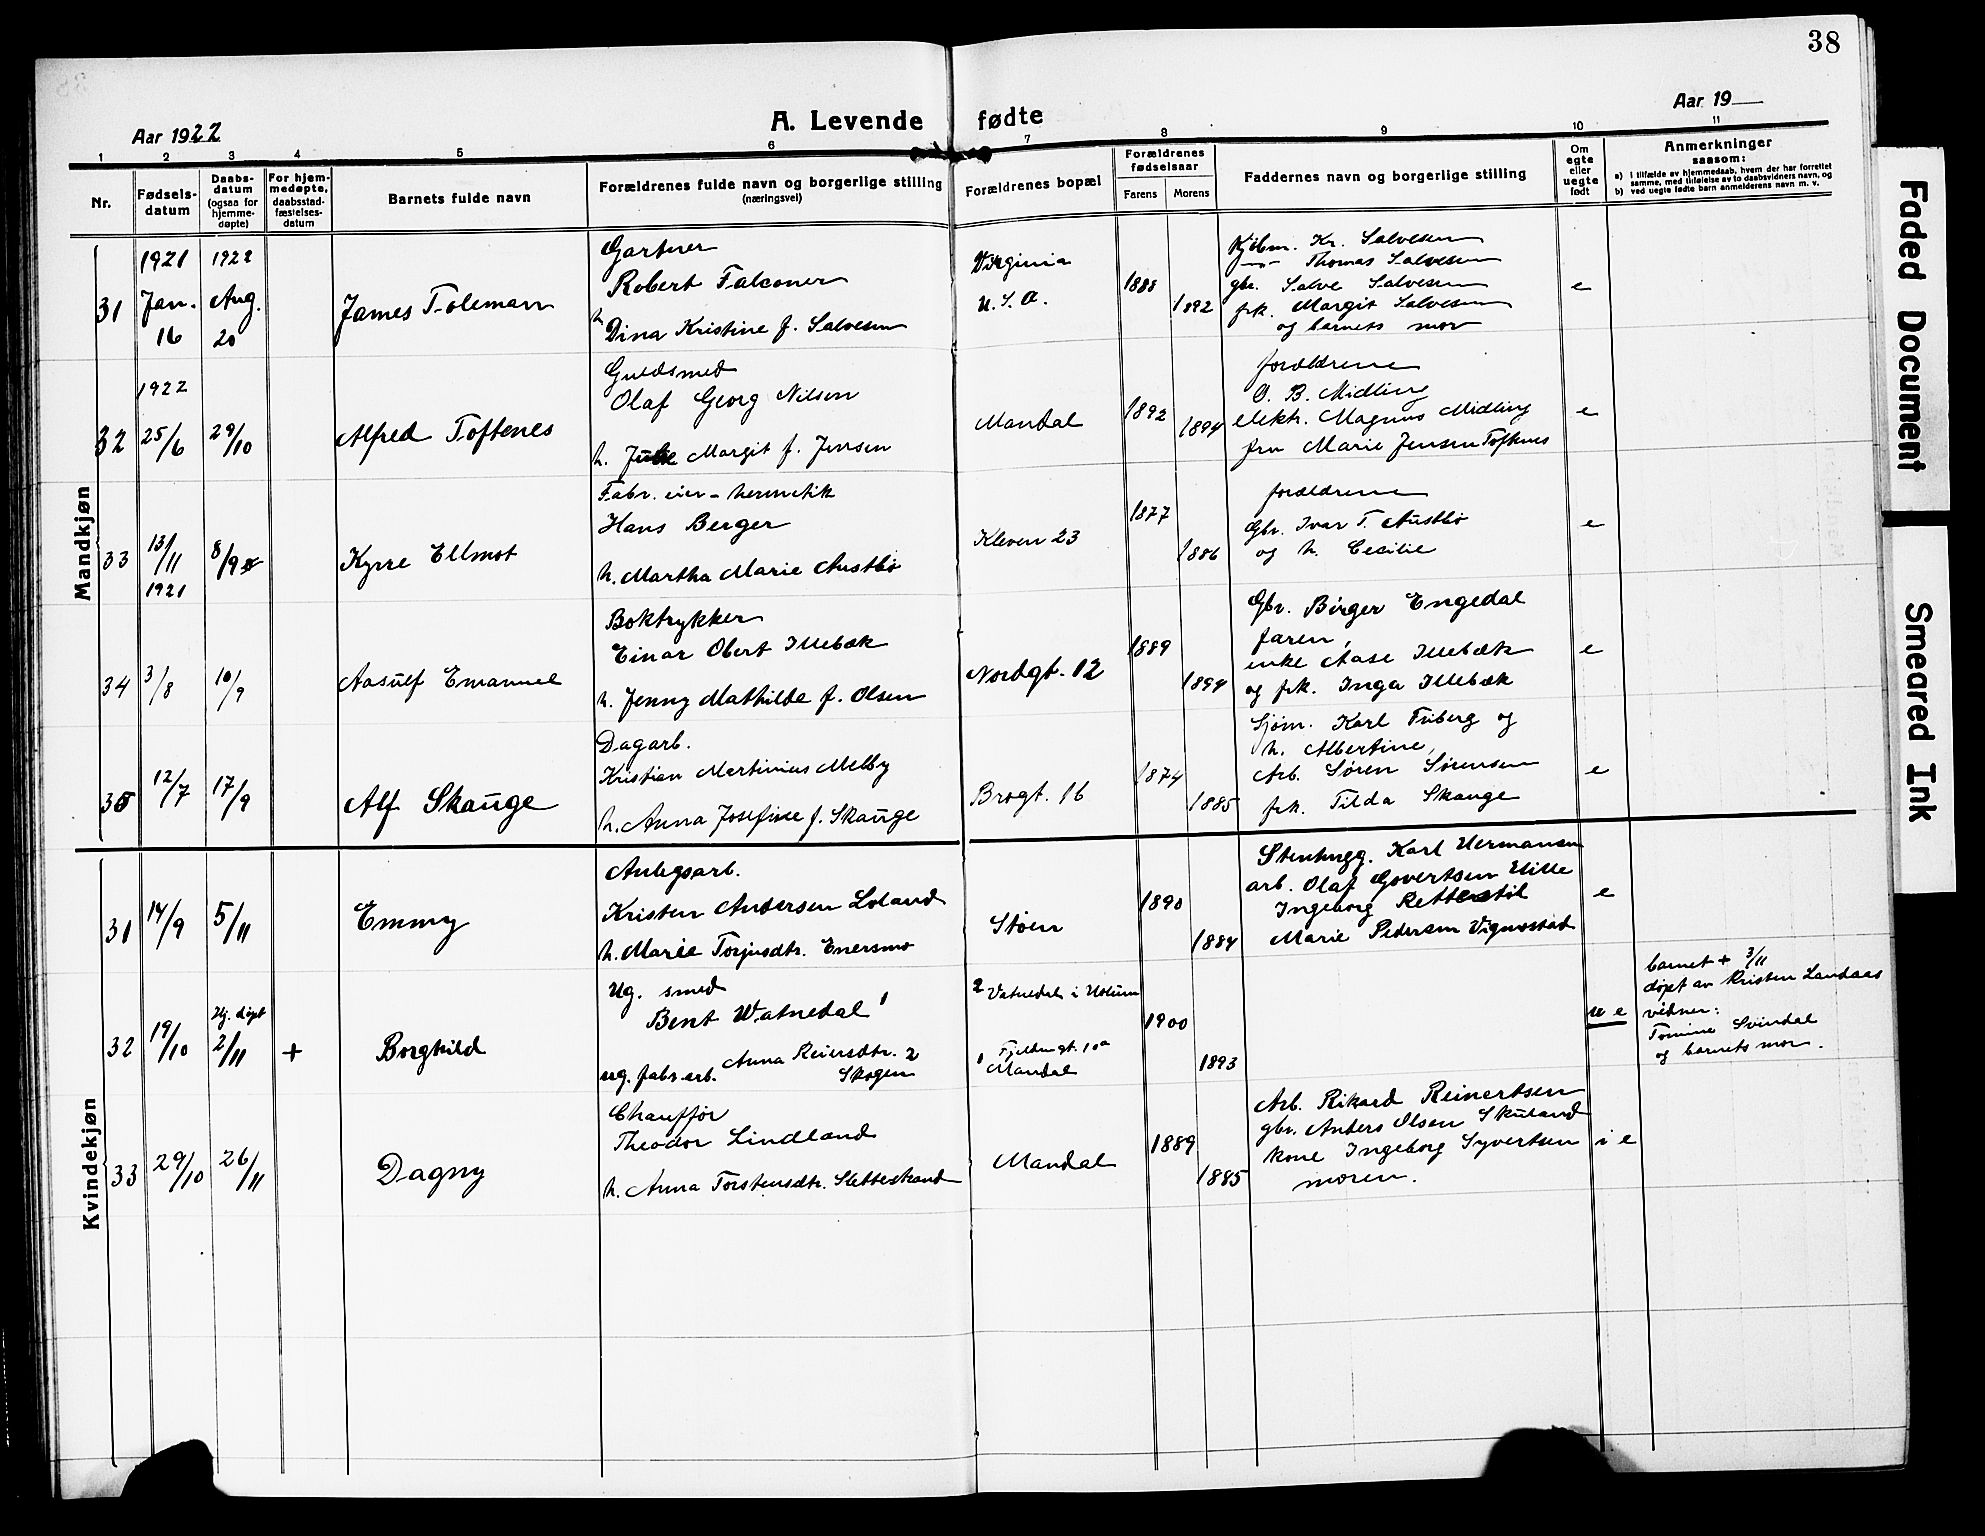 38
Aar 1922
A. Levende fødte
Aar 19
1 2 3 4 5 6 7 8 9 10 11
Nr.
Fødselsdatum
Daabsdatum (ogsaa for hjemmedøpte)
For hjemmedøpte, daabsstadfæstelsesdatum
Barnets fulde navn
Forældrenes fulde navn og borgerlige stilling
(næringsvei)
Forældrenes bopæl
Forældrenes fødselsaar
Farens Morens
Faddernes navn og borgerlige stilling
Om egte eller uegte født
Anmerkninger
saasom:
a) i tilfælde av hjemmedaab, hvem der har forrettet
samme, med tilføielse av to daabsvidners navn, og
b) ved uegte fødte barn anmelderens navn m. v.
Mandkjøn
31
1921 Jan. 16
1922 Aug. 20
James Toleman
Gartner
Robert Falconer
h Dina Kristine f. Salvesen
Virginia
U. S. A.
1888
1892
Kjøbm. Kr. Salvesen
—"— Thomas Salvesen
gbr. Salve Salvesen
frk. Margit Salvesen
og barnets mor
e
32
1922
25/6
29/10
Alfred Toftenes
Guldsmed
Olaf Georg Nilsen
h. Julie Margit f. Jensen
Mandal
1892
1894
forældrene
O. B. Midling
elektr. Magnus Midling
fru Marie Jensen Toftenes
e
33
13/11
1921
8/9
Kyrre Ellmot
Fabr. eier - hermetik
Hans Berger
h. Martha Marie Austbø
Kleven 23
1877
1886
forældrene
Gbr. Ivar T. Austbø
og h. Cecilie
e
34
3/8
10/9
Aasulf Emanuel
Boktrykker
Einar Obert Illebæk
h. Jenny Mathilde f. Olsen
Nordgt. 12
1889
1894
Gbr. Birger Engedal
faren,
enke Aase Illebæk
og frk. Inga Illebæk
e
35
12/7
17/9
Alf Skauge
Dagarb.
Kristian Martinius Melby
h. Anna Josefine f. Skauge
Brogt. 16
1874
1885
Sjøm. Karl Friberg og
h. Albertine,
Arb. Søren Sørensen
frk. Tilda Skauge
e
Kvindekjøn
31
14/9
5/11
Emmy
Anlegsarb.
Kristen Andersen Loland
h. Marie Torjusdtr. Enersmo
Støen
1890
1884
Stenhugg. Karl Hermansen
arb. Olaf Govertsen Hille
Ingeborg Retterstøl
Marie Pedersen Vigmostad
e
32
19/10
Hj. døpt
2/11
+
Borghild
Ug. smed
Bent Watnedal 1
ug. fabr. arb. Anna Reiersdtr. 2
Skogen
2 Vatnedal i Holum
1 Fjeldmgt. 10a
Mandal
1900
1893
u e
barnet + 3/11
døpt av Kristen Landaas
vidner:
Tomine Svindal
og barnets mor.
33
29/10
26/11
Dagny
Chauffør
Theodor Lindland
h. Anna Torstensdtr. Slettestrand
Mandal
1889
1885
Arb. Rikard Reinertsen
gbr. Anders Olsen Skuland
kone Ingeborg Syvertsen
moren.
i e
Faded Document
Smeared Ink